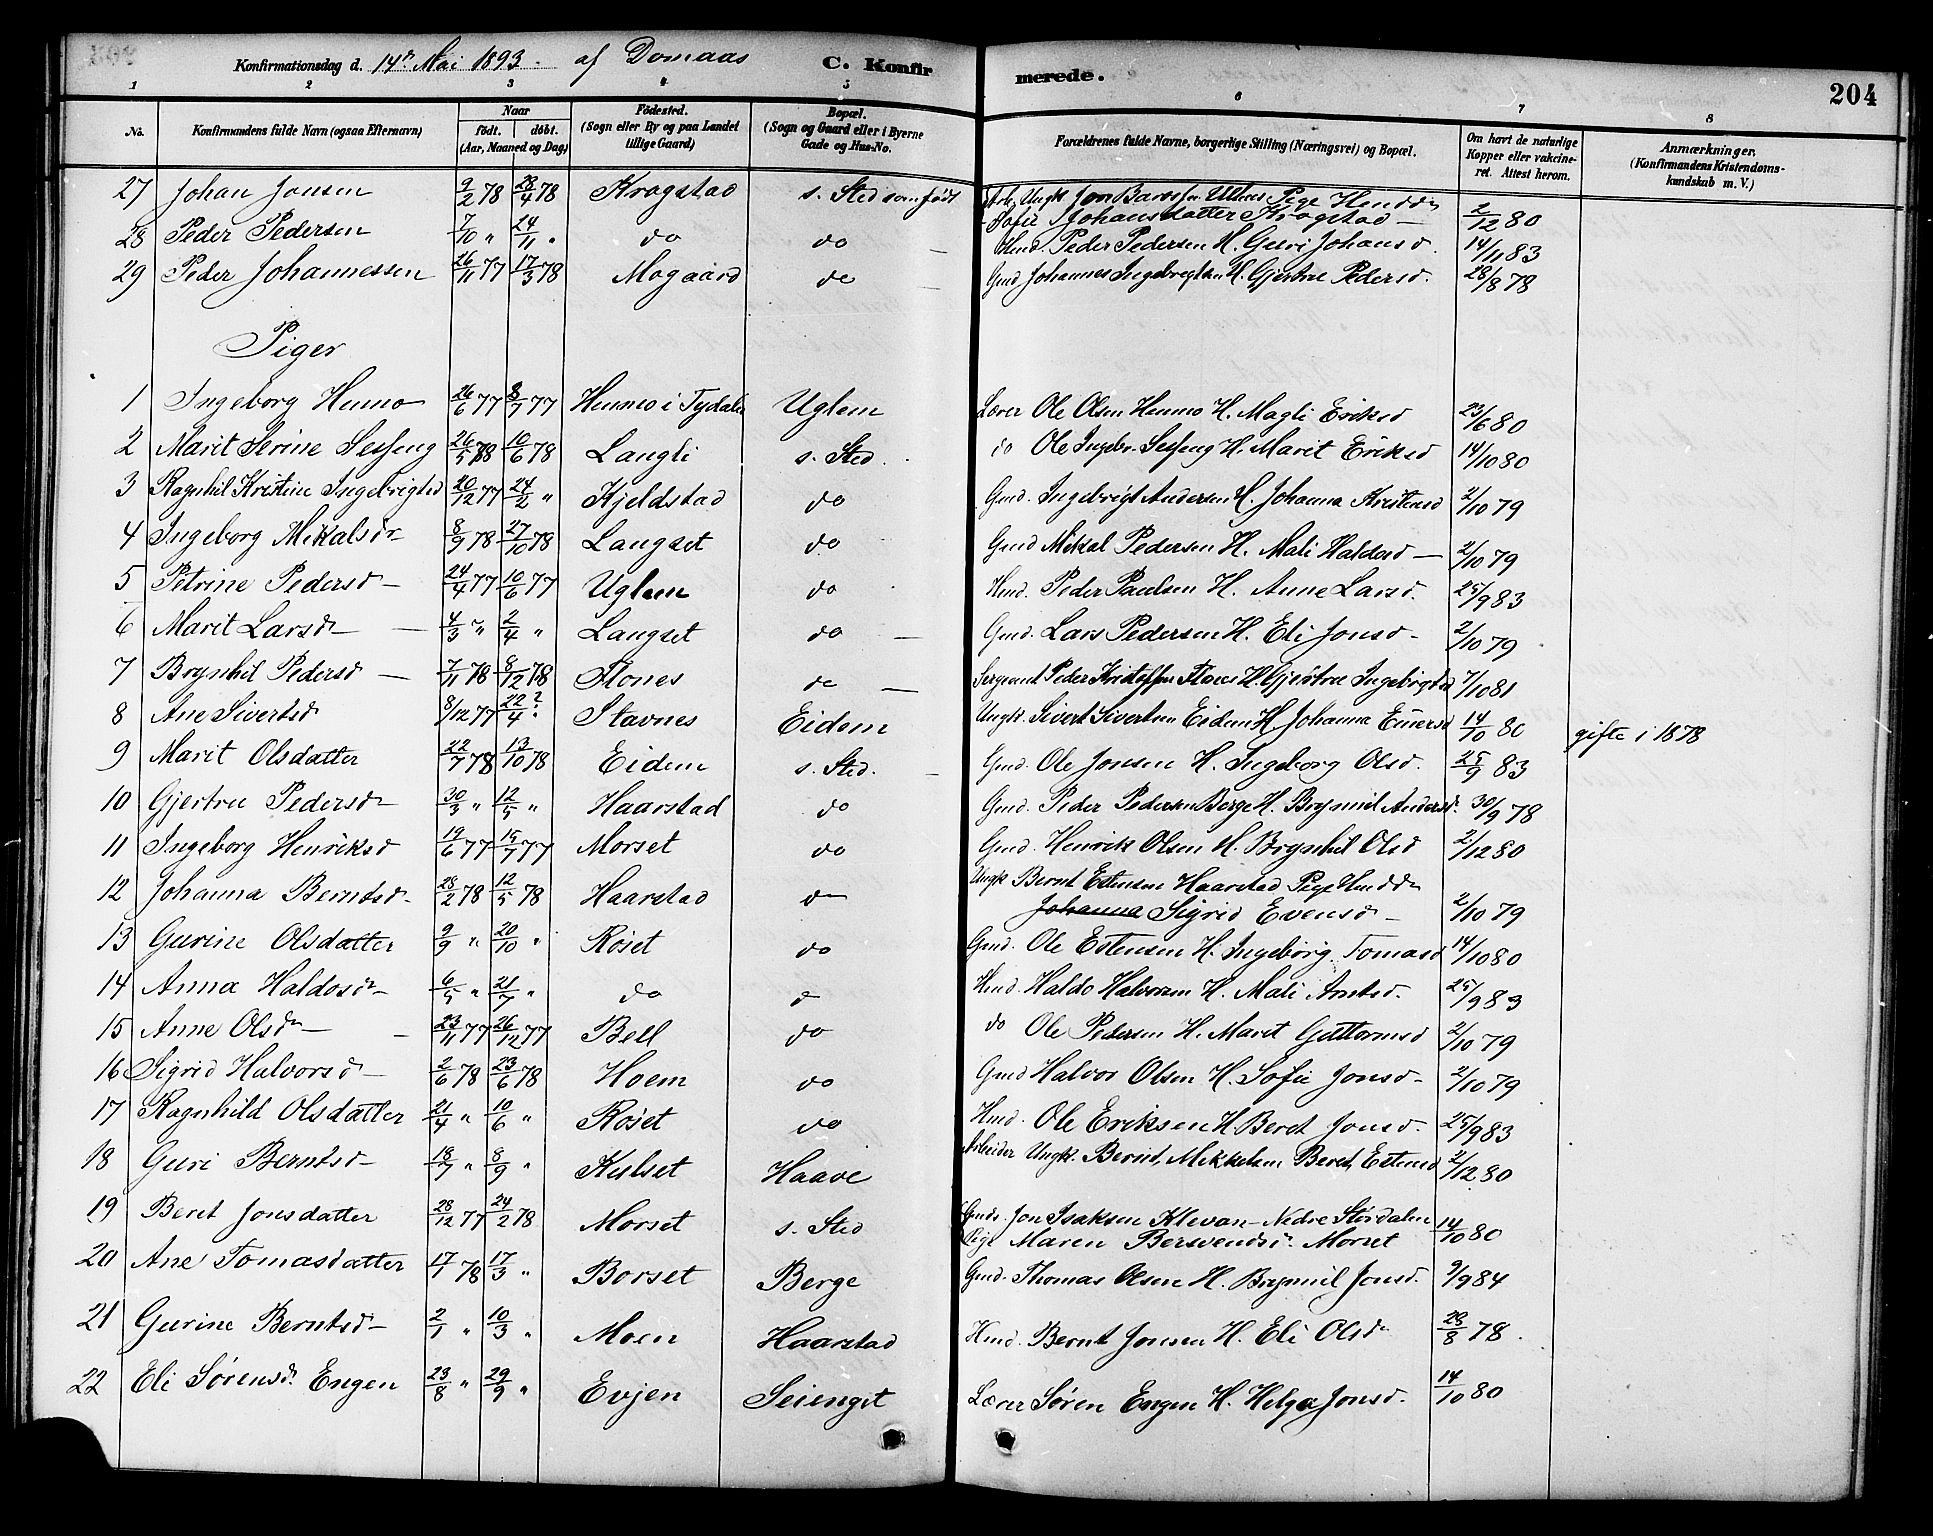 Konfirmationsdag d. 14de Mai 1893. af Domaas C. Konfirmerede. 204
1 2 3 4 5 6 7 8
No. Konfirmandens fulde Navn (ogsaa Efternavn) Naar født. døbt. (Aar, Maaned og Dag) Fødested. (Sogn eller By og paa Landet tillige Gaard) Bopæl. (Sogn og Gaard eller i Byerne Gade og Hus-No. Forældrenes fulde Navne, borgerlige Stilling (Næringsvei) og Bopæl. Om havt de naturlige Kopper eller vakcineret. Attest herom. Anmærkninger, (Konfirmandens Kristendomskundskab m. V.)
27 Johan Jonsen 9/2 78 28/4 78 Kragstad s. Sted som født Arb. Ungk Jon Pige
Sofie Johansdatter Kragstad 2/12 80
28 Peder Pedersen 7/10 " 24/11 " do do Hmd. Peder Pedersen H. Guri Johansd. 14/11 83
29 Peder Johannessen 26/11 77 17/3 78 Mogaard do Gmd Johannes Ingebrigtsen H. Gjertrue Pedersd. 28/8 78
Piger
1 Ingeborg Hunno 26/6 77 8/7 77 Hunno i Tydalen Uglem Lærer Ole Olsen Hunno H. Magli Eriksd 23/6 80
2 Marit Serine Sesseng 26/5 78 10/6 78 Langli s. Sted do Ole Ingebr. Sesseng H. Marit Eriksd 14/10 80
3 Ragnhil Kristine Ingebrigtsd 20/12 77 24/2 " Kjeldstad do Gmd. Ingebrigt Andersen H. Johanna Kristensd 2/10 79
4 Ingeborg Mikalsdr 8/9 78 27/10 78 Langset do Gmd Mikal Pedersen H. Mali Haldosd 2/10 79
5 Petrine Pedersd 24/4 77 10/6 77 Uglem do Hmd. Peder Paulsen H. Anne Larsd. 25/9 83
6 Marit Larsdr 4/3 " 2/4 " Langset do Gmd. Lars Pedersen H. Eli Jonsd 2/10 79
7 Brynhil Pedersd 7/11 78 8/12 78 Flones do Sergeant Peder Kristoffersen Flones H. Gjertrue Ingebrigtsd 7/10 81
8 Ane Sivertsd 8/12 77 22/4 ? Stavnes Eidem Ungk. Sivert Sivertsen Eidem H. Johanna Einersd 14/10 80 gifte i 1878
9 Marit Olsdatter 22/7 78 13/10 78 Eidem s. Sted. Gmd. Ole Jonsen H. Ingeborg Olsd. 25/9 83
10 Gjertru Pedersdr 30/3 " 12/5 " Haarstad do Gmd. Peder Pedersen Berge H. Brynnil Andersdr 30/9 78
11 Ingeborg Henriksd 19/6 77 15/7 77 Morset do Gmd. Henrik Olsen H. Brynhil Olsd 2/12 80
12 Johanna Berntsdr 28/2 78 12/5 78 Haarstad do Ungk Bernt Estensen Haarstad Pige
Johanna Sigrid Evensd 2/10 79
13 Gurine Olsdatter 9/9 " 20/10 " Røset do Gmd. Ole Estensen H. Ingeborg Tomasd 14/10 80
14 Anna Haldosdr 6/5 " 21/7 " do d Hmd. Haldo Halvorsen H. Mali Arntsd. 25/9 83
15 Anne Olsdr 23/11 77 26/12 77 Bell do do Ole Pedersen H. Marit Guttormsd 2/10 79
16 Sigrid Halvorsd 2/6 78 23/6 78 Hoem do Gmd Halvor Olsen H. Sofie Jonsd 2/10 79
17 Ragnhild Olsdatter 21/4 " 10/6 " Røset do Hmd. Ole Eriksen H. Beret Jonsd. 25/9 83
18 Guri Berntsd 18/7 " 8/9 " Kulset Haave Arbeider Ungk. Bernt Mikkelsen Beret Estensd 2/12 80
19 Beret Jonsdatter 28/12 77 24/2 78 Morset s. Sted Gmds. Jon Isaksen Klevan Nedre Stördalen
Pige Maren Bersvendsdr. Morset 14/10 80
20 Ane Tomasdatter 17/1 78 17/3 " Borset Berge Gmd. Thomas Olsen H. Brynnil Jonsd. 9/9 84
21 Gurine Berntsd 2/1 " 10/3 " Moen Haarstad Hmd. Bernt Jonsen H. Eli Olsdr 28/8 78
22 Eli Sørensdr. Engen 23/8 " 29/9 " Evjen Seienget Lærer Søren Engen H. Helga Jonsd. 14/10 80